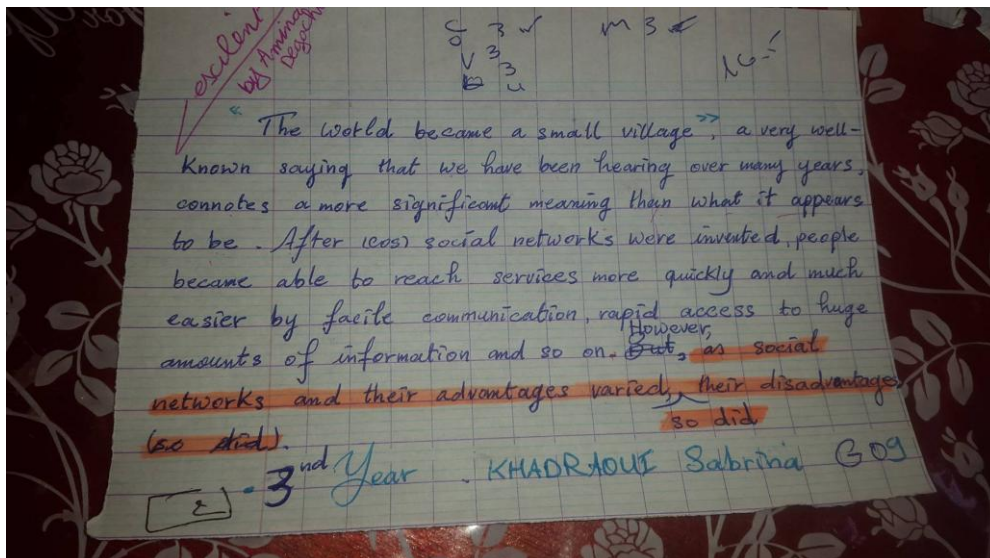 excilent
by Amina
Degachi
G 3 ✓ M 3 ✓
V 3
3
4
16
"The world became a small village", a very well-
known saying that we have been hearing over many years,
connotes a more significant meaning than what it appears
to be. After (cos) social networks were invented, people
became able to reach services more quickly and much
easier by facile communication, rapid access to huge
amounts of information and so on. But, However, as social
networks and their advantages varied, their disadvantages
(so did). so did
3nd Year. KHADRAOUI Sabrina G09
2